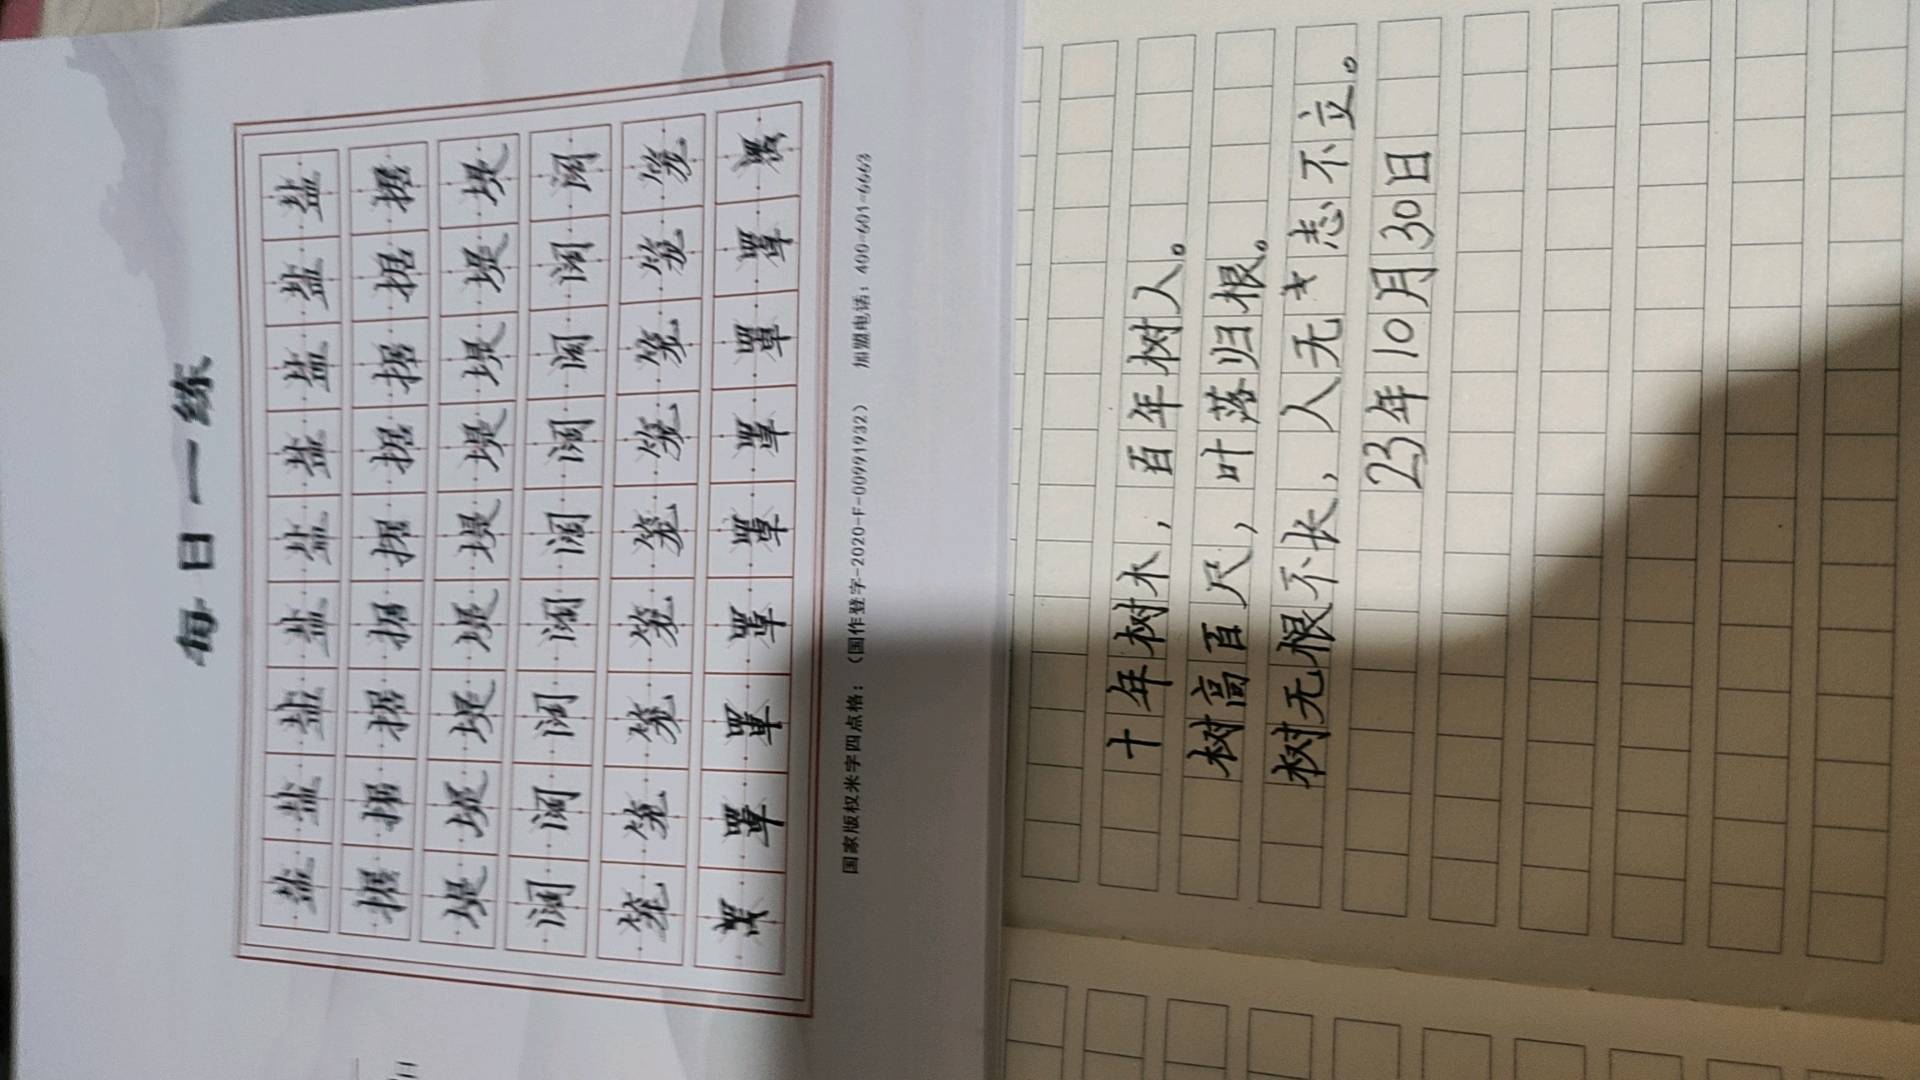 每日一练
盐 盐 盐 盐 盐 盐 盐 盐 盐
据 据 据 据 据 据 据 据 据
堤 堤 堤 堤 堤 堤 堤 堤 堤
阔 阔 阔 阔 阔 阔 阔 阔 阔
笼 笼 笼 笼 笼 笼 笼 笼 笼
罩 罩 罩 罩 罩 罩 罩
国家版权米字四点格:(国作登字-2020-F-00991932) 加盟电话:400-601-6663
十年树木,百年树人。
树高百尺,叶落归根。
树无根不长,人无志不立。
23年10月30日